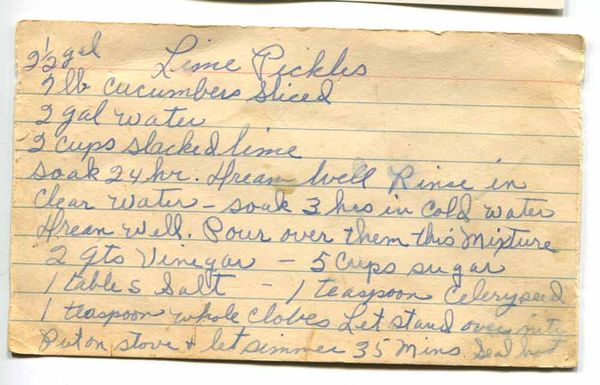 2½ gal Lime Pickles
7 lb cucumbers sliced
2 gal water
2 cups slacked lime
soak 24 hr. Drean well Rinse in
clear water - soak 3 hrs in cold water
Drean well. Pour over them this mixture
2 qts vinegar - 5 cups sugar
1 tables salt - 1 teaspoon celeryseed
1 teaspoon whole cloves Let stand over nite
Put on stove & let simmer 35 mins. Seal hot